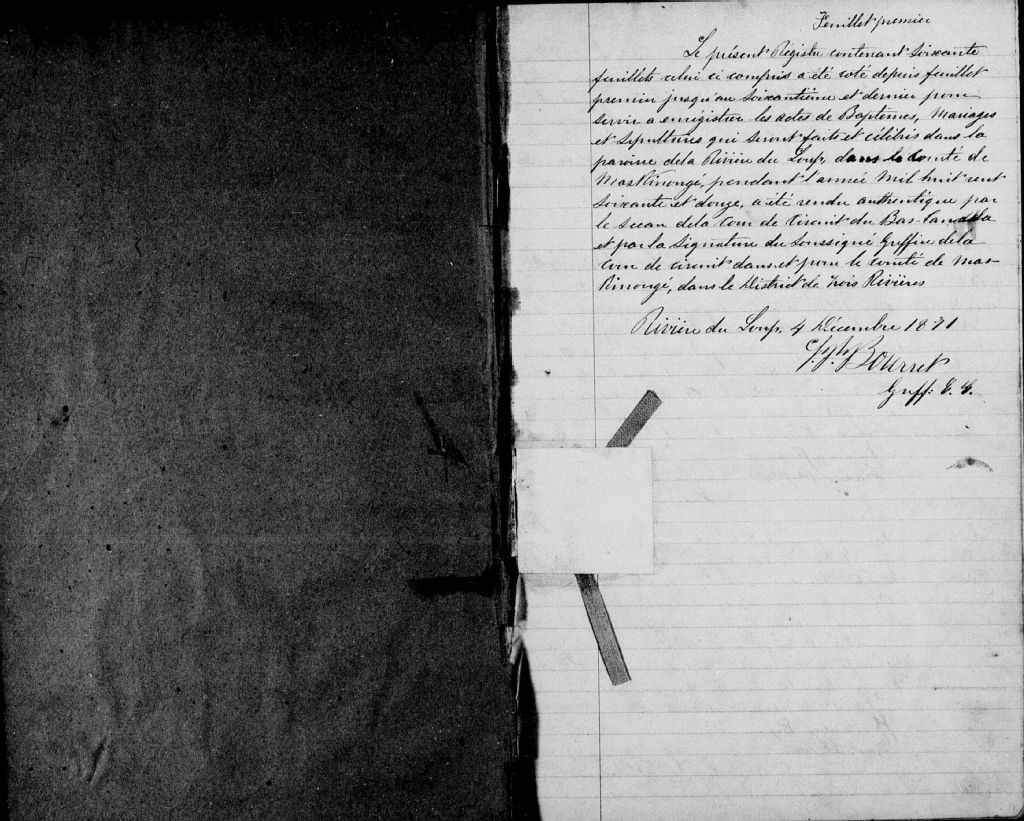 Feuillet premier
Le présent Registre contenant soixante
feuillets celui ci compris a été coté depuis feuillet
premier jusqu'au soixantième et dernier pour
servir a enrégistrer les actes de Baptêmes, Mariages
et Sépultures qui seront faits et célébrés dans la
paroisse dela Rivière du Loup, dans le comté de
Maskinongé, pendant l'année Mil huit cent
soixante et douze, a été rendu authentique par
le sceau dela Cour de Circuit du Bas-Canada
et par la Signature du Soussigné Greffier dela
Cour de circuit dans et pour le comté de Mas-
kinongé, dans le District de Trois Rivières
Rivière du Loup, 4 Décembre 1871
Bourret
Greff: C. C.